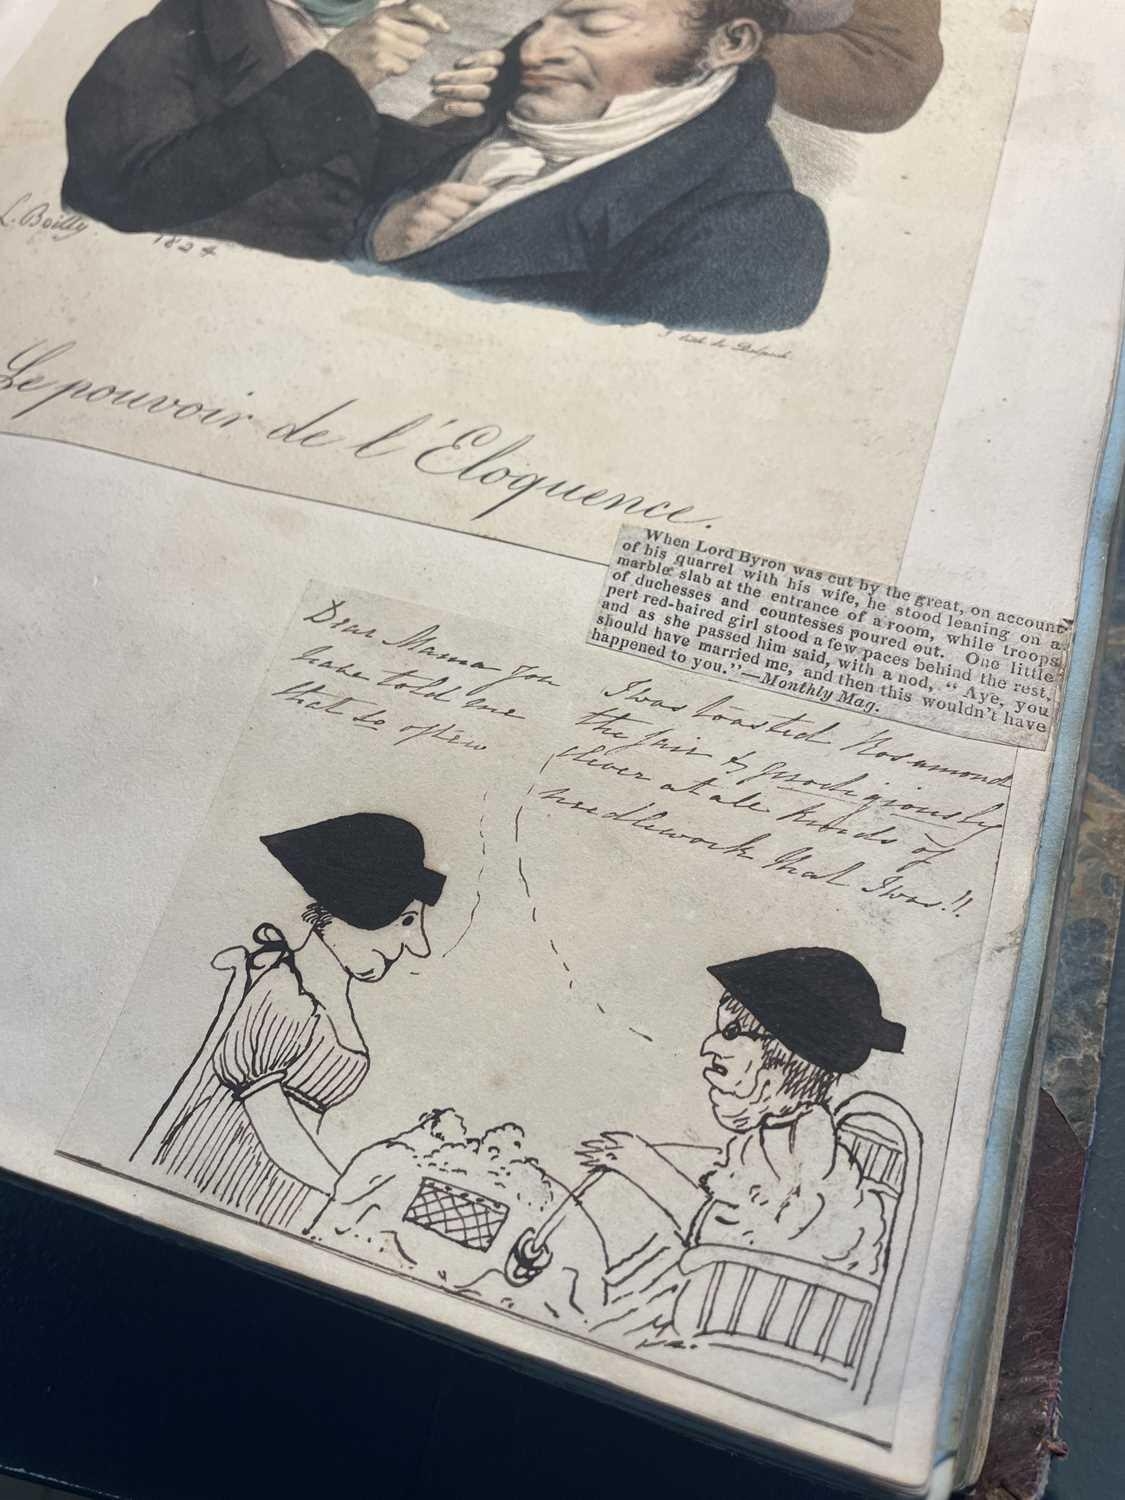 L. Boilly
1824
lith de Delpech
Le pouvoir de l'Eloquence.
When Lord Byron was cut by the great, on account
of his quarrel with his wife, he stood leaning on a
marble slab at the entrance of a room, while troops
of duchesses and countesses poured out. One little
pert red-haired girl stood a few paces behind the rest,
and as she passed him said, with a nod, "Aye, you
should have married me, and then this wouldn't have
happened to you."—Monthly Mag.
Dear Mama you
have told me
that so often
I was toasted Rosamond
the fair & prodigiously
clever at all kinds of
needlework that I was!!